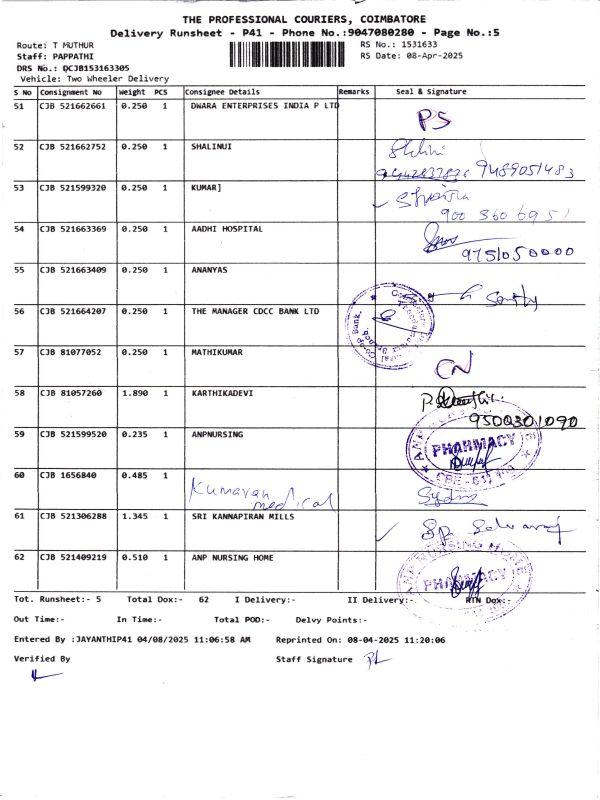 THE PROFESSIONAL COURIERS, COIMBATORE
Delivery Runsheet - P41 - Phone No.:9047080280 - Page No.:5
Route: T MUTHUR
Staff: PAPPATHI
DRS No.: DCJB153163305
Vehicle: Two Wheeler Delivery
RS No.: 1531633
RS Date: 08-Apr-2025
S No Consignment No Weight PCS Consignee Details Remarks Seal & Signature
51 CJB 521662661 0.250 1 DWARA ENTERPRISES INDIA P LTD
PS
52 CJB 521662752 0.250 1 SHALINUI
9489051483
53 CJB 521599320 0.250 1 KUMAR]
900 360 6951
54 CJB 521663369 0.250 1 AADHI HOSPITAL
9751050000
55 CJB 521663409 0.250 1 ANANYAS
56 CJB 521664207 0.250 1 THE MANAGER CDCC BANK LTD
57 CJB 81077052 0.250 1 MATHIKUMAR
CN
58 CJB 81057260 1.890 1 KARTHIKADEVI
9500301090
59 CJB 521599520 0.235 1 ANPNURSING
PHARMACY
60 CJB 1656840 0.485 1
Kumaran medical
61 CJB 521306288 1.345 1 SRI KANNAPIRAN MILLS
62 CJB 521409219 0.510 1 ANP NURSING HOME
PHARMACY
Tot. Runsheet:- 5 Total Dox:- 62 I Delivery:- II Delivery:- RTN Dox:-
Out Time:- In Time:- Total POD:- Delvy Points:-
Entered By :JAYANTHIP41 04/08/2025 11:06:58 AM Reprinted On: 08-04-2025 11:20:06
Verified By Staff Signature